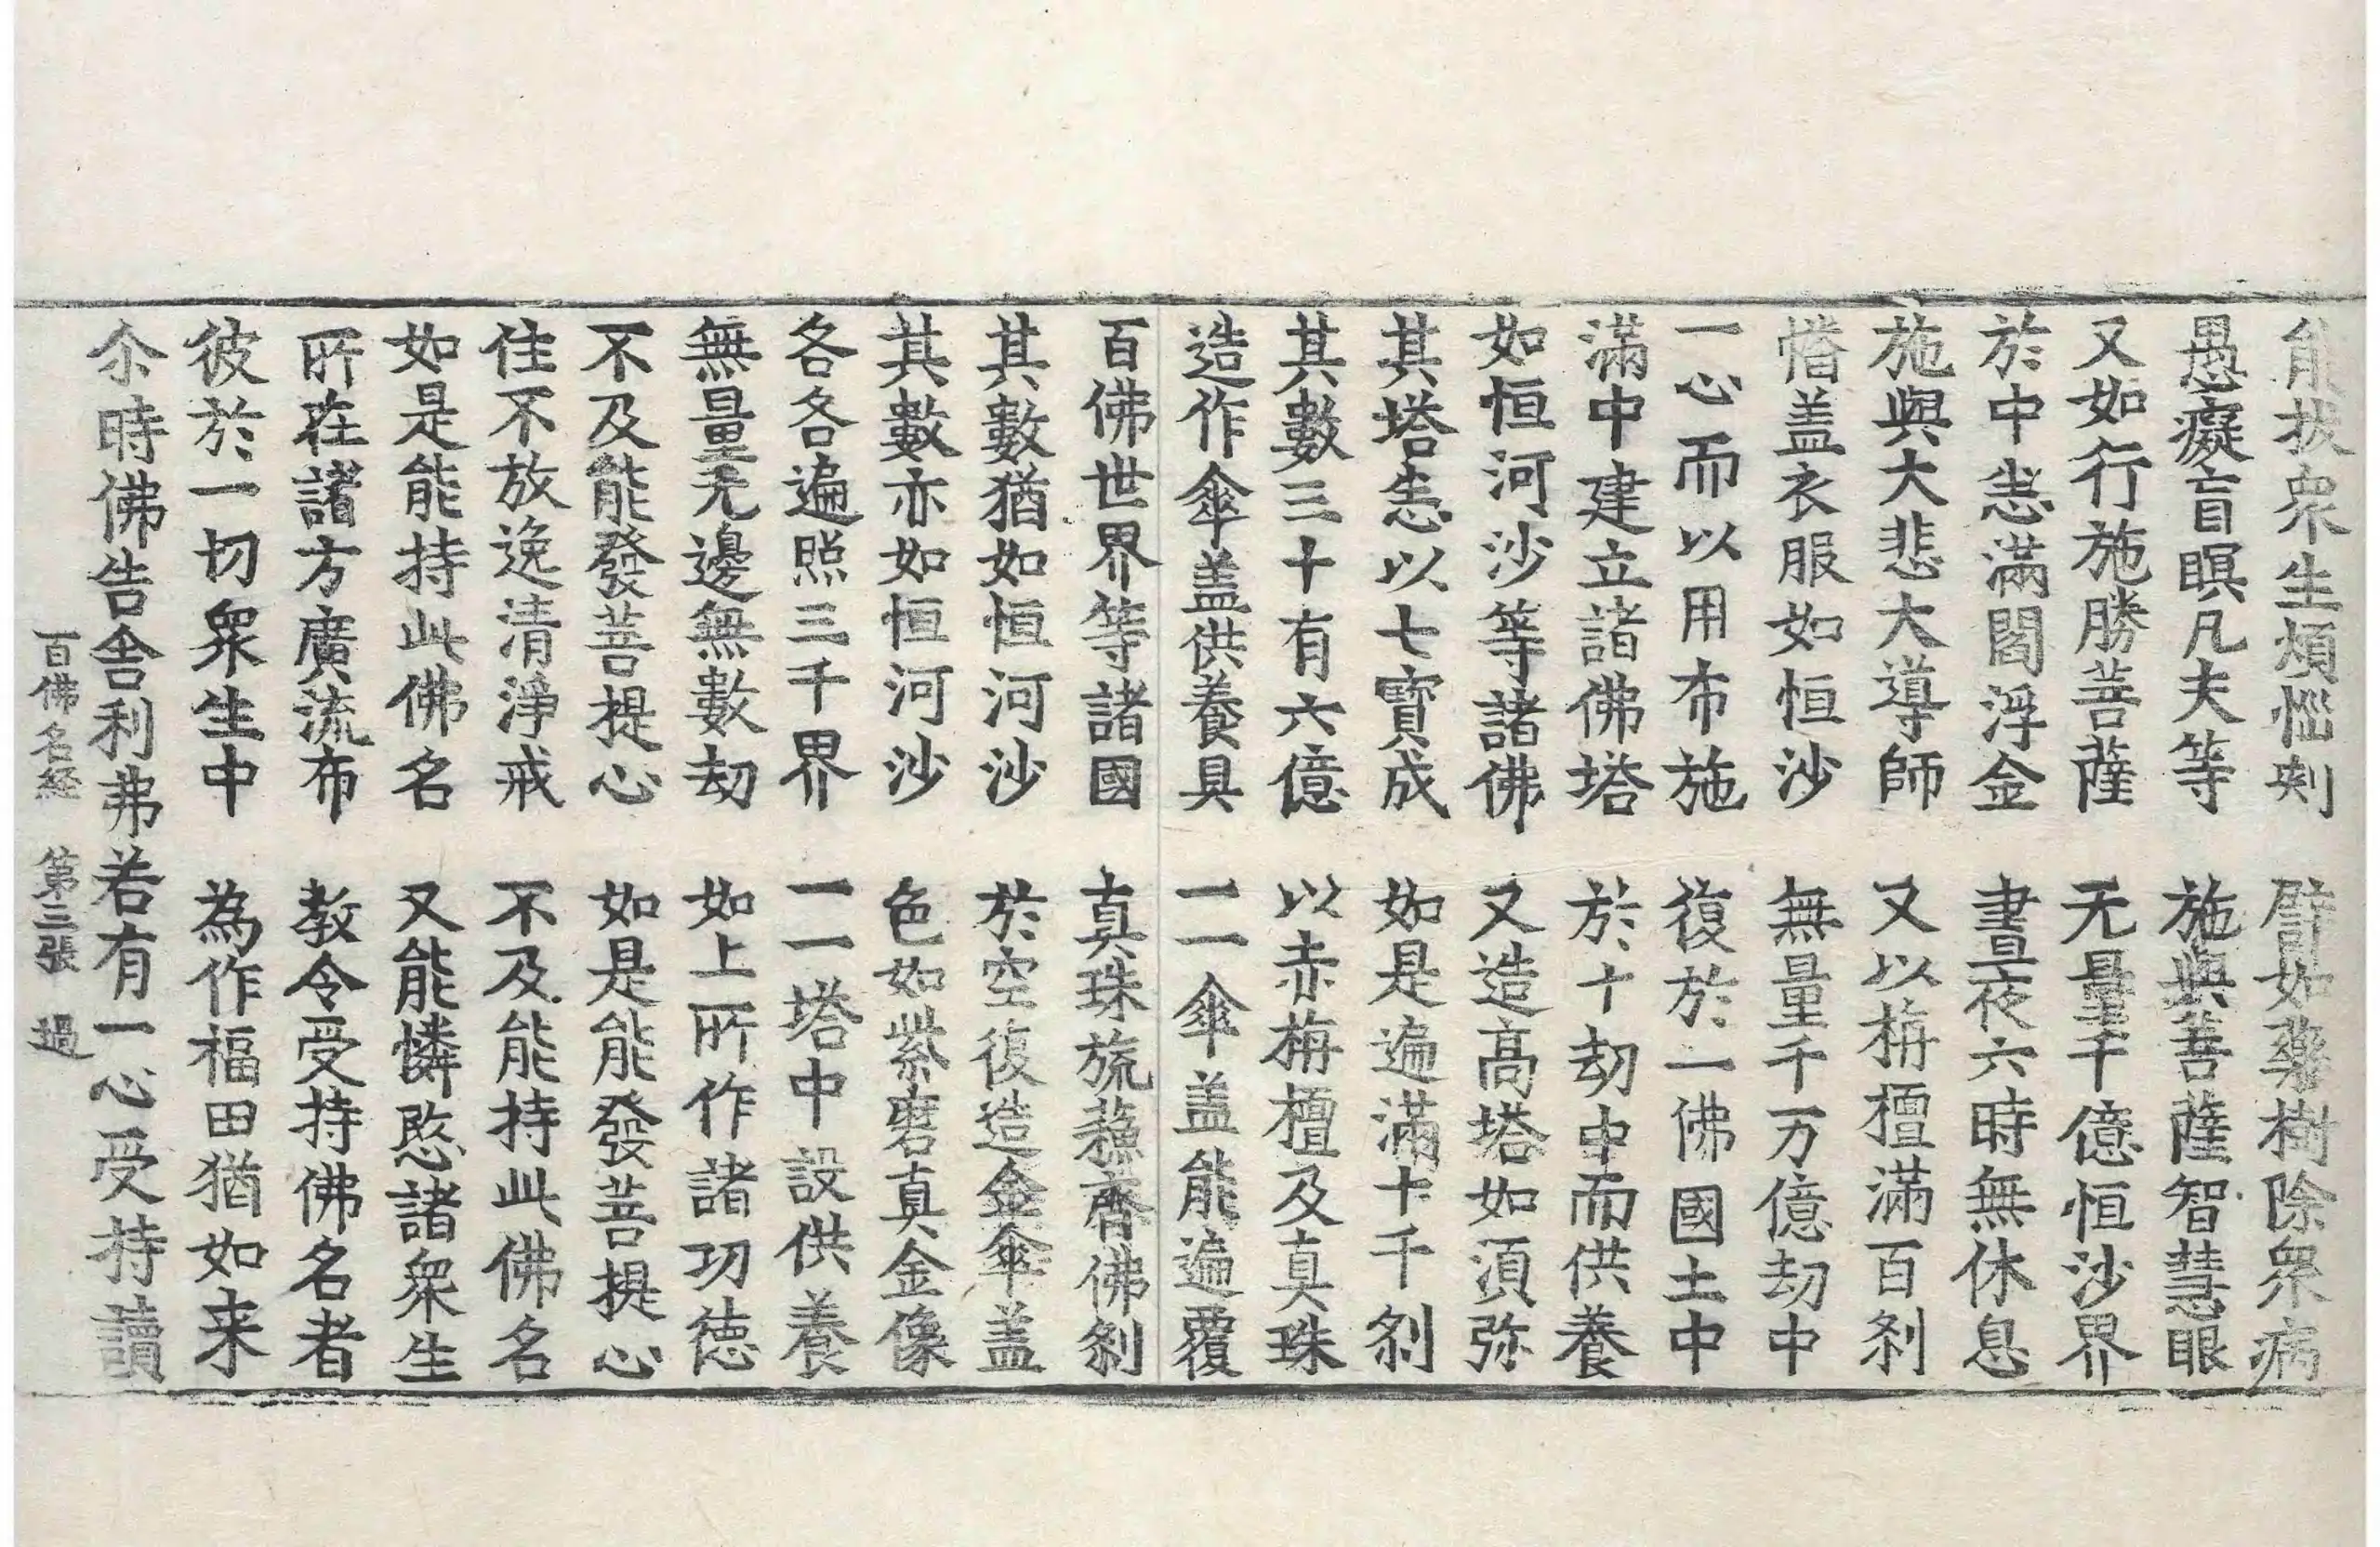 能拔衆生煩惱刺　譬如藥樹除衆病
愚癡盲瞑凡夫等　施與菩薩智慧眼
又如行施勝菩薩　无量千億恒沙界
於中悉滿閻浮金　晝夜六時無休息
施與大悲大導師　又以栴檀滿百刹
幡盖衣服如恒沙　無量千万億劫中
一心而以用布施　復於一佛國土中
滿中建立諸佛塔　於十劫中而供養
如恒河沙等諸佛　又造高塔如湏弥
其塔悉以七寳成　如是遍滿十千刹
其數三十有六億　以赤栴檀及真珠
造作傘盖供養具　一一傘盖能遍覆
百佛世界等諸國　真珠旒蘓齊佛刹
其數猶如恒河沙　於空復造金傘盖
其數亦如恒河沙　色如紫磨真金像
各各遍照三千界　一一塔中設供養
無量无邊無數劫　如上所作諸功徳
不及能發菩提心　如是能發菩提心
住不放逸清淨戒　不及能持此佛名
如是能持此佛名　又能憐愍諸衆生
所在諸方廣流布　教令受持佛名者
彼於一切衆生中　為作福田猶如来
尒時佛告舍利弗若有一心受持讀
百佛名経　第三張　過